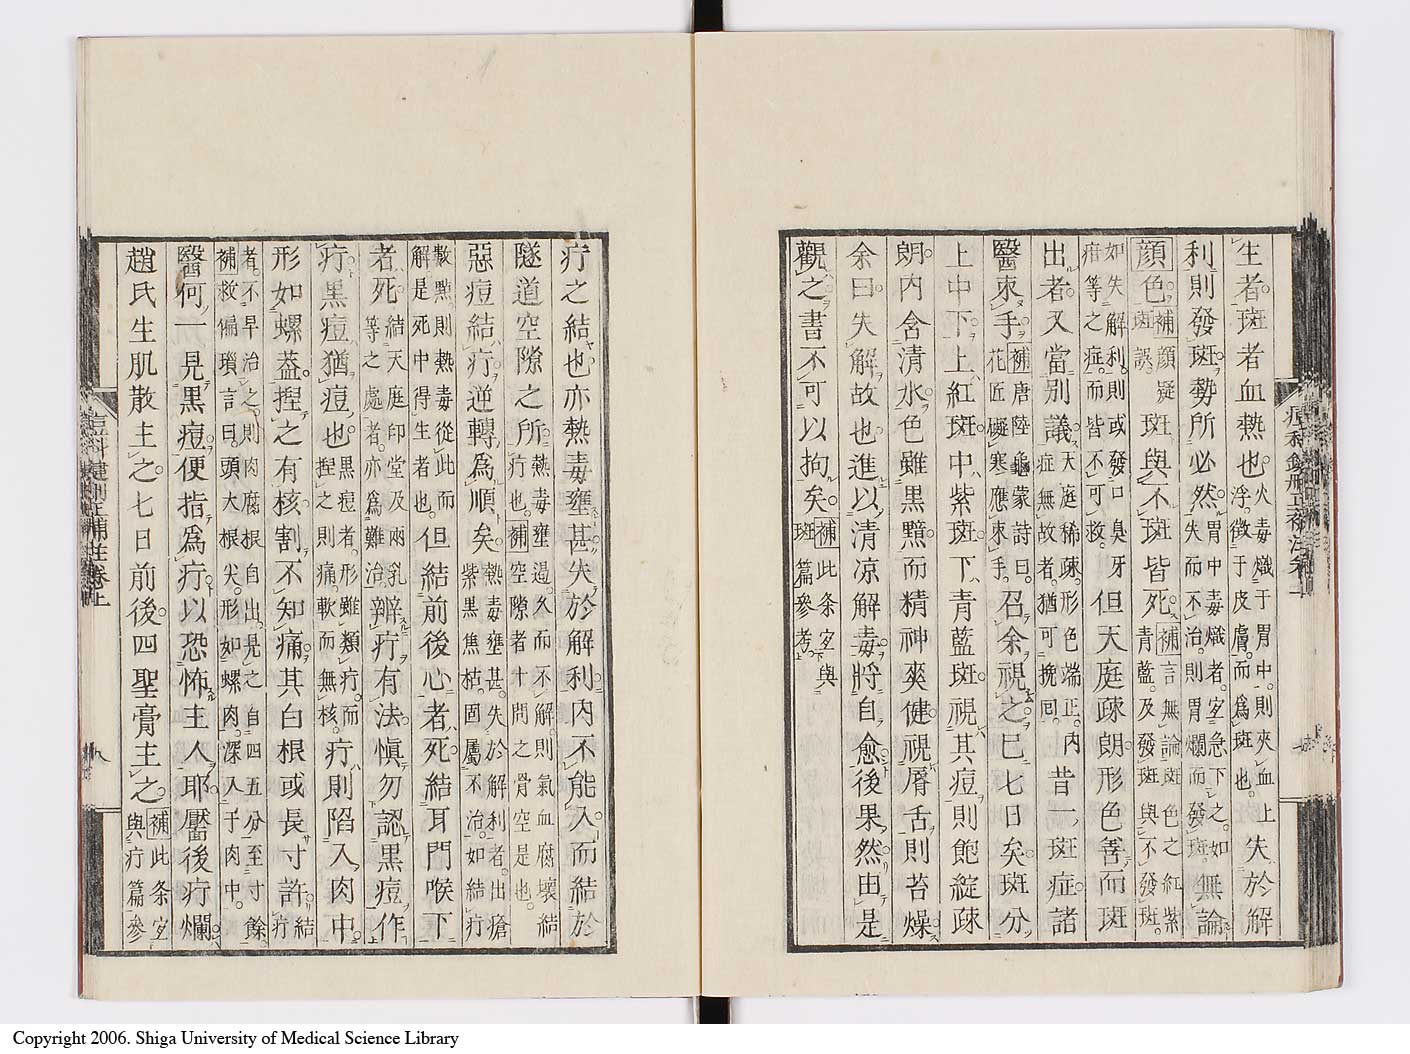 生者。斑者血熱也。火毒熾于胃中。則夾血上浮。徵于皮膚。而爲斑也。失於解
利則發斑。勢所必然。胃中毒熾者。宜急下之。如失而不治。則胃爛而發斑。無論
顔色補顔疑斑誤。斑與不斑皆死。補言無論斑色之紅紫青藍。及發斑與不發斑。
如失解利。則或發口臭牙疳等之症。而皆不可救。但天庭疎朗。形色善而斑
出者。又當別議。天庭稀疎。形色端正。内症無故者。猶可挽回。昔一斑症諸
醫束手。補唐陸龜蒙詩曰。花匠礙寒應束手。召余視之。已七日矣。斑分
上中下。上紅斑。中紫斑。下青藍斑。視其痘則飽綻疎
朗。内含清水。色雖黒黯。而精神爽健。視唇舌則苔燥。
余曰失解故也。進以清凉解毒。將自愈。後果然。由是
觀之。書不可以拘矣。補此条宜與斑篇參考。
疔之結也。亦熱毒壅甚。失於解利。内不能入。而結於
隧道空隙之所。熱毒壅遏。久而不解。則氣血腐壊結疔也。補空隙者十問之骨空是也。
惡痘結疔。逆轉爲順矣。熱毒壅甚。失於解利者。出瘡紫黒焦枯。固屬不治。如結疔
數點。則熱毒從此而解。是死中得生者也。但結前後心者死。結耳門喉下
者死。結天庭印堂及兩乳等之處者。亦爲難治。辨疔有法。愼勿認黒痘作
疔。黒痘猶痘也。黒痘者。形雖類疔。而捏之則痛。軟而無核。疔則陷入肉中。
形如螺蓋。捏之有核。割不知痛。其白根或長寸許。結疔
者。不早治之。則肉腐根自出。見之自四五分至寸餘。補救偏瑣言曰。頭大根尖。形如螺肉。深入于肉中。
醫何一見黒痘。便指爲疔。以恐怖主人耶。靨後疔爛。
趙氏生肌散主之。七日前後。四聖膏主之。補此条宜與疔篇參
痘科鍵刪正補注卷上
八
Copyright 2006. Shiga University of Medical Science Library